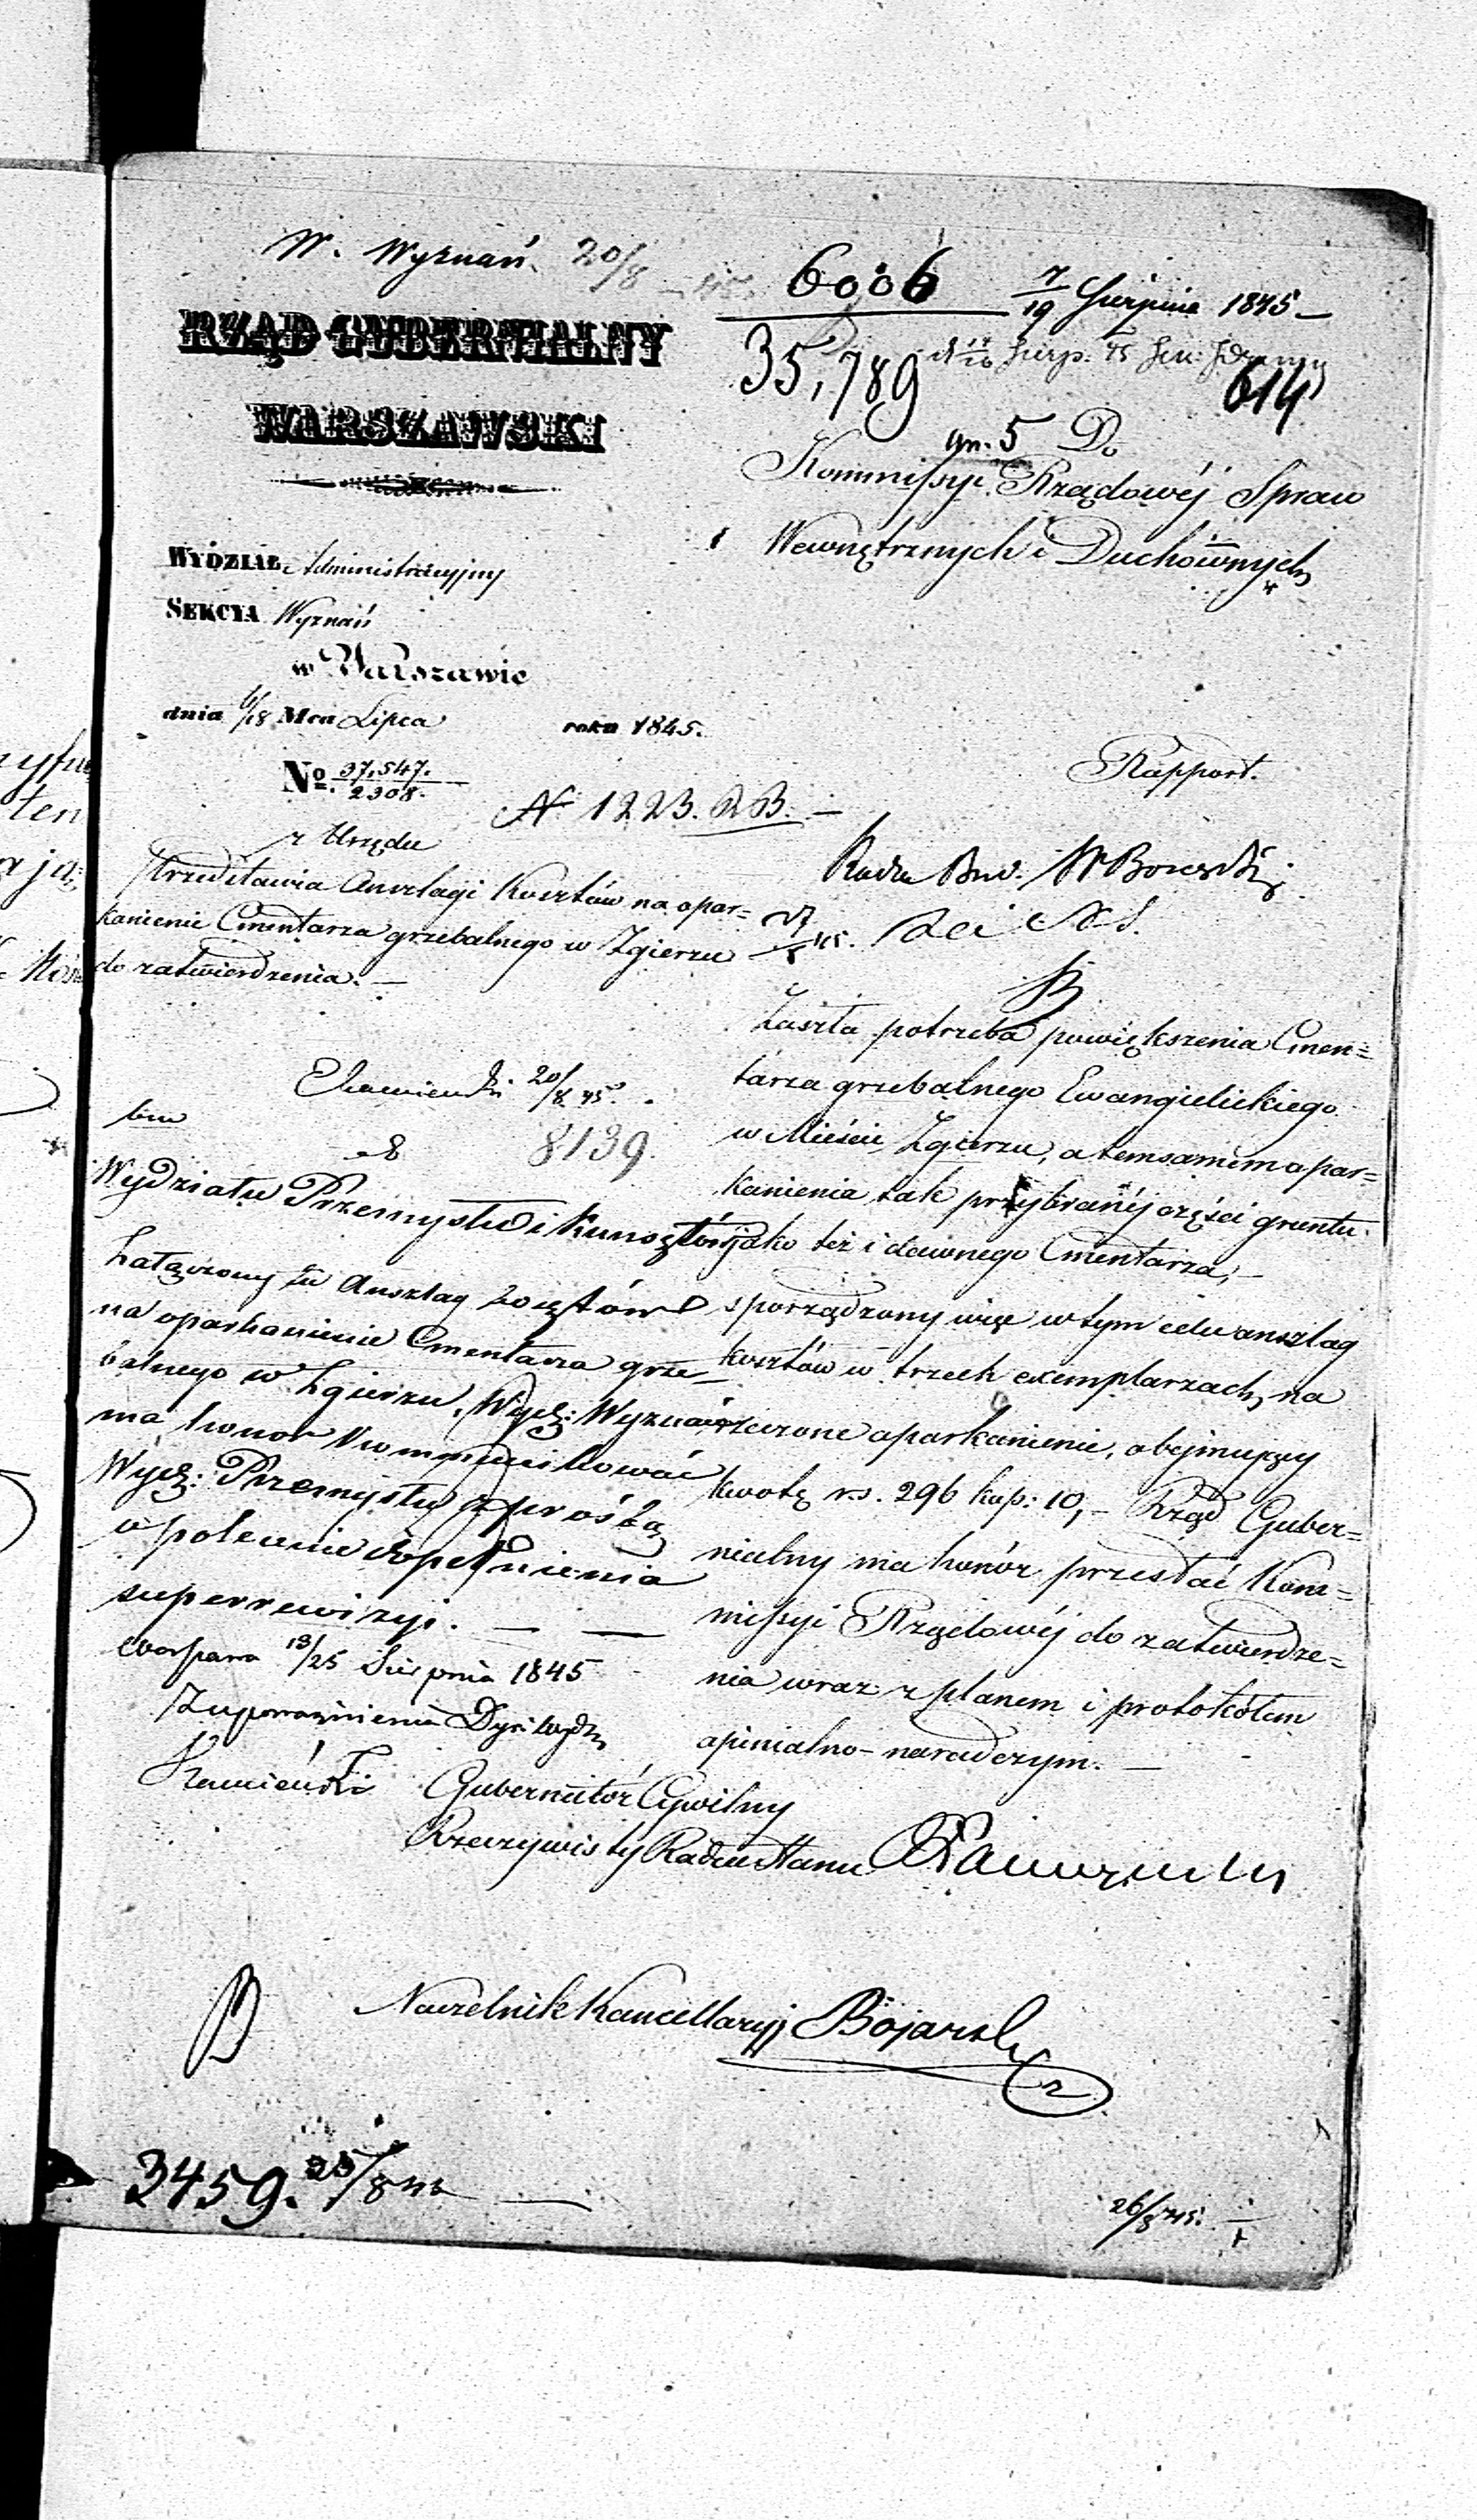 W. Wyznań 20/8 45.
6006
35,789
7/19 Sierpnia 1845
614
gn. 5 Do
Kommissyi Rządowéj Spraw
Wewnętrznych i Duchównych
RZĄD GUBERNIALNY
WARSZAWSKI
WYDZIAŁ Administracyjny
SEKCYA Wyznań
w Warszawie
dnia 6/18 Mca Lipca roku 1845.
No. 37,547./2308.
N 1223. DB.
z Urzędu
Przedstawia Anszlagi Kosztów na opar=
kanienie Cmentarza grzebalnego w Zgierzu
do zatwierdzenia. —
Rapport.
Radca Bud.
Zaszła potrzeba powiększenia Cmen=
tarza grzebalnego Ewangielickiego
w Mieście Zgierzu, a temsamem opar=
kanienia tak przybranéj części gruntu
jako też i dawnego Cmentarza, —
sporządzony więc w tym celu anszlag
kosztów w trzech exemplarzach, na
rzeczone oparkanienie, obejmujący
kwotę r.s. 296 kop: 10, — Rząd Guber=
nialny ma honór przesłać Kom=
missyi Rządowéj do zatwierdze=
nia wraz z planem i protokółem
opinialno-naradczym. —
20/8 45.
8139.
Wydziału Przemysłu i Kunsztów
Załączony tu Anszlag kosztów
na oparkanienie Cmentarza grze
balnego w Zgierzu, Wydz: Wyznań
ma honor kommunikować
Wydz: Przemysłu z prośbą
o polecenie dopełnienia
superrewizyi. — —
Warszawa 13/25 Sierpnia 1845
Z upoważnienia Dyr: Wydz
Kamieński
Gubernator Cywilny
Rzeczywisty Radca Stanu
Naczelnik Kancellaryj Bojarski
3459. 25/8 45
26/8 45.